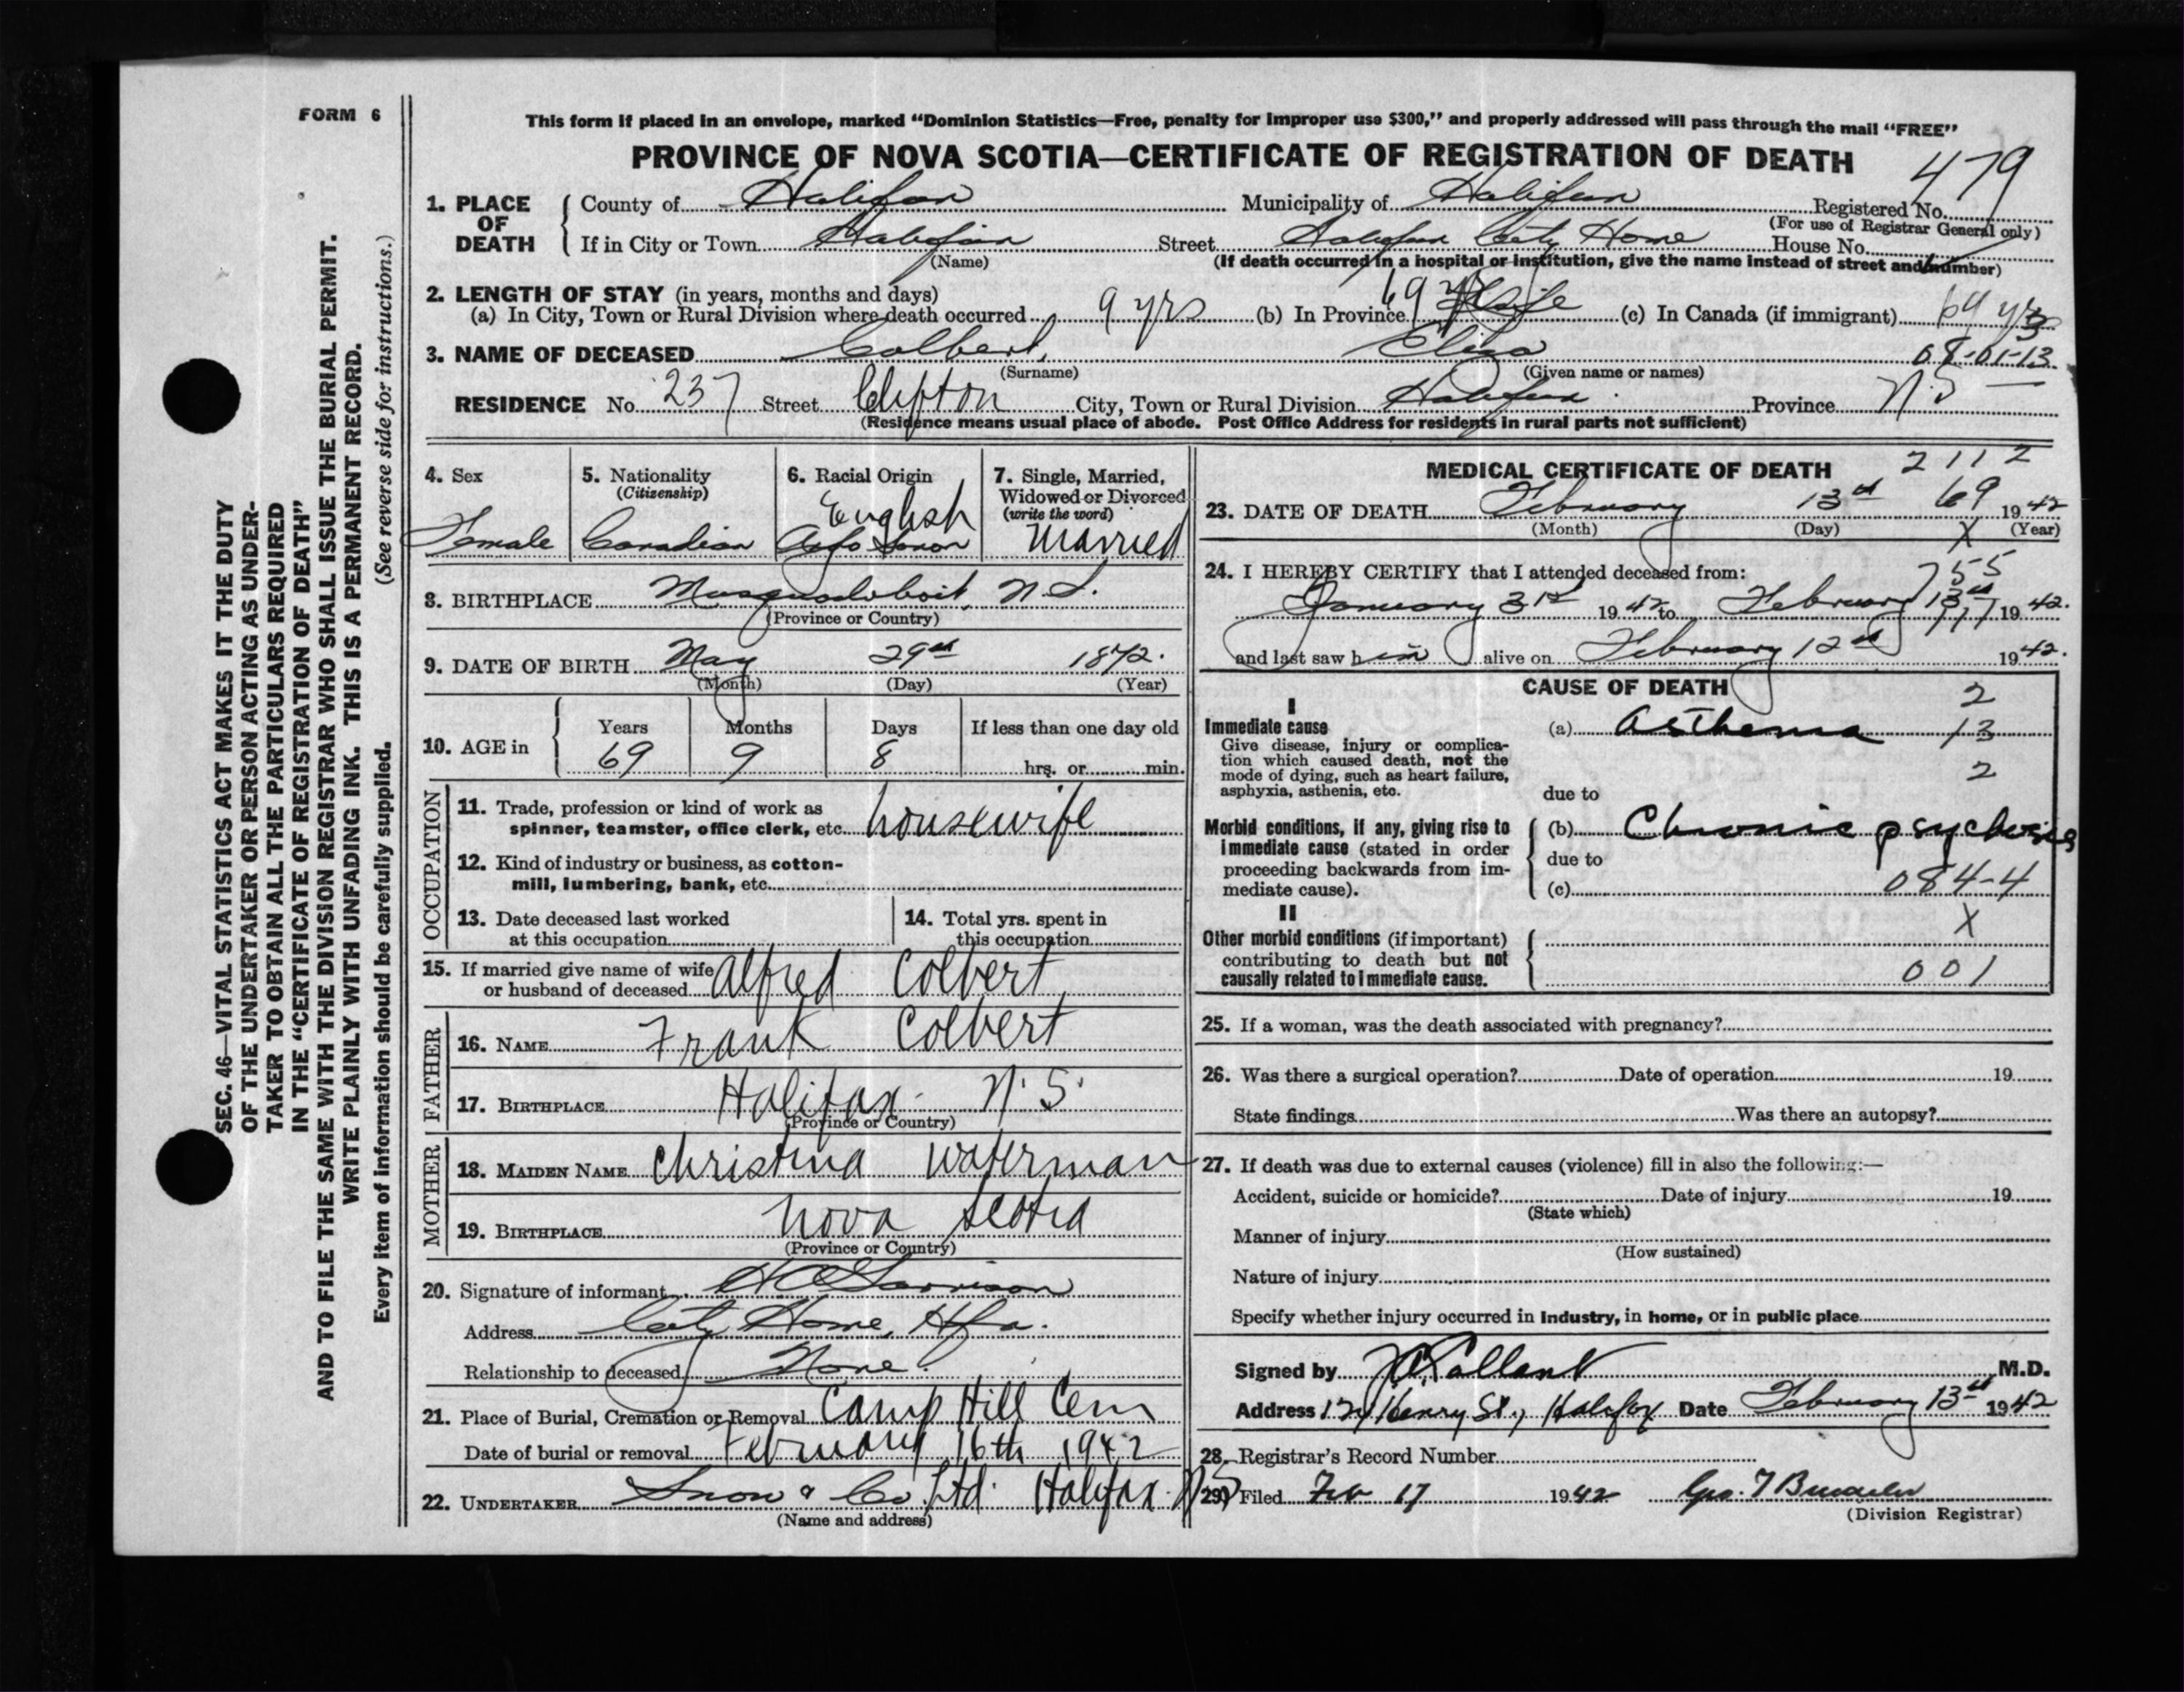 FORM 6
SEC. 46—VITAL STATISTICS ACT MAKES IT THE DUTY
OF THE UNDERTAKER OR PERSON ACTING AS UNDER-
TAKER TO OBTAIN ALL THE PARTICULARS REQUIRED
IN THE "CERTIFICATE OF REGISTRATION OF DEATH"
AND TO FILE THE SAME WITH THE DIVISION REGISTRAR WHO SHALL ISSUE THE BURIAL PERMIT.
WRITE PLAINLY WITH UNFADING INK. THIS IS A PERMANENT RECORD.
Every item of information should be carefully supplied. (See reverse side for instructions.)
This form if placed in an envelope, marked "Dominion Statistics—Free, penalty for improper use $300," and properly addressed will pass through the mail "FREE"
PROVINCE OF NOVA SCOTIA—CERTIFICATE OF REGISTRATION OF DEATH
479
1. PLACE OF DEATH County of Halifax Municipality of Halifax Registered No.
(For use of Registrar General only)
If in City or Town Halifax Street Halifax City Home House No.
(Name) (If death occurred in a hospital or institution, give the name instead of street and number)
2. LENGTH OF STAY (in years, months and days)
(a) In City, Town or Rural Division where death occurred 9 yrs (b) In Province 69 yrs Life (c) In Canada (if immigrant) 69 yrs
3. NAME OF DECEASED Colbert, Eliza 08-01-13
(Surname) (Given name or names)
RESIDENCE No. 237 Street Clifton City, Town or Rural Division Halifax Province N.S
(Residence means usual place of abode. Post Office Address for residents in rural parts not sufficient)
4. Sex Female
5. Nationality (Citizenship) Canadian
6. Racial Origin English Saxon
7. Single, Married, Widowed or Divorced (write the word) Married
8. BIRTHPLACE Musquodoboit, N.S.
(Province or Country)
9. DATE OF BIRTH May 29th 1872.
(Month) (Day) (Year)
10. AGE in Years 69 Months 9 Days 8 If less than one day old hrs. or min.
OCCUPATION
11. Trade, profession or kind of work as
spinner, teamster, office clerk, etc. housewife
12. Kind of industry or business, as cotton-
mill, lumbering, bank, etc.
13. Date deceased last worked
at this occupation
14. Total yrs. spent in
this occupation
15. If married give name of wife
or husband of deceased Alfred Colbert
FATHER
16. NAME Frank Colbert
17. BIRTHPLACE Halifax N.S.
(Province or Country)
MOTHER
18. MAIDEN NAME Christina Waterman
19. BIRTHPLACE Nova Scotia
(Province or Country)
20. Signature of informant
Address City Home, Hfx.
Relationship to deceased None.
21. Place of Burial, Cremation or Removal Camp Hill Cem
Date of burial or removal February 16th 1942
22. UNDERTAKER Snow & Co Ltd. Halifax N S
(Name and address)
MEDICAL CERTIFICATE OF DEATH 2112
69
23. DATE OF DEATH February 13th 1942
(Month) (Day) X (Year)
24. I HEREBY CERTIFY that I attended deceased from: 755
January 31st 1942 to February 13th 1942.
and last saw him alive on February 12th 1942.
CAUSE OF DEATH
2
I
Immediate cause (a) Asthenia 13
Give disease, injury or complica-
tion which caused death, not the
mode of dying, such as heart failure, 2
asphyxia, asthenia, etc.
due to
Morbid conditions, if any, giving rise to (b) Chronic psychosis
immediate cause (stated in order
proceeding backwards from im-
mediate cause).
due to
(c) 084-4
II
X
Other morbid conditions (if important)
contributing to death but not
causally related to immediate cause. 001
25. If a woman, was the death associated with pregnancy?
26. Was there a surgical operation? Date of operation 19
State findings Was there an autopsy?
27. If death was due to external causes (violence) fill in also the following:—
Accident, suicide or homicide? Date of injury 19
(State which)
Manner of injury
(How sustained)
Nature of injury
Specify whether injury occurred in industry, in home, or in public place
Signed by M.D.
Address Henry St., Halifax Date February 13th 1942
28. Registrar's Record Number
29. Filed Feb 17 1942 Geo. T
(Division Registrar)